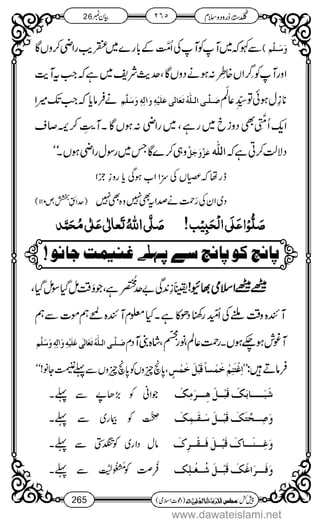 بیان نمبر26 ٢٦٥ گلدستۂ دُرود و سلام
وَسَلَّم) سے کہو کہ میں آپ کو آپ کی اُمَّت کے بارے میں عنقریب راضی کروں گا
اور آپ کا گراں خاطِر نہ ہونے دوں گا، حدیث شریف میں ہے کہ جب یہ آیت
نازِل ہوئی تو سیِّدِ عالَم صَلَّی اللّٰہُ تَعَالٰی عَلَیْہِ وَاٰلِہٖ وَسَلَّم نے فرمایا کہ جب تک میرا
ایک اُمَّتی بھی دوزخ میں رہے، میں راضی نہ ہوں گا۔ آیتِ کریمہ صاف
دلالت کرتی ہے کہ اللّٰہ عَزَّوَجَلَّ وہی کرے گا جس میں رسول راضی ہوں۔‘‘
ڈر تھا کہ عِصیاں کی سزا اب ہوگی یا روزِ جزا
دی اُن کی رَحمت نے صدا یہ بھی نہیں وہ بھی نہیں (حدائقِ بخشش،ص۱۱۰)
صَلُّوْا عَلَی الْحَبِیْب! صَلَّی اللّٰہُ تَعَالٰی عَلٰی مُحَمَّد
پانچ کو پانچ سے پہلے غنیمت جانو!
میٹھے میٹھے اسلامی بھائیو! یقیناً زِنْدَگی بے حد مُخْتَصَر ہے، جو وَقْت مل گیا سو مل گیا،
آئندہ وقت ملنے کی اُمّید رکھنا دھوکا ہے۔ کیا معلوم آئندہ لمحے ہم موت سے ہم
آغوش ہوچکے ہوں۔ رحمتِ عالَم، نورِ مُجَسَّم، شاہِ بنی آدم صَلَّی اللّٰہُ تَعَالٰی عَلَیْہِ وَاٰلِہٖ وَسَلَّم
فرماتے ہیں: ’’اِغْتَنِمْ خَمْساً قَبْلَ خَمْسٍ، پانچ چیزوں کو پانچ چیزوں سے پہلے غنیمت جانو‘‘
شَبَابَکَ قَبْلَ ھِرَمِکَ جوانی کو بڑھاپے سے پہلے۔
وَصِحَّتَکَ قَبْلَ سَقَمِکَ صحّت کو بیماری سے پہلے۔
وَغِنَاکَ قَبْلَ فَقْرِکَ مال داری کو تنگدستی سے پہلے۔
وَفَرَاغَکَ قَبْلَ شُغْلِکَ فُرصت کو مشغولیّت سے پہلے
265 پیش کش: مجلس المدینۃ العلمیۃ (دعوتِ اسلامی)
www.dawateislami.net